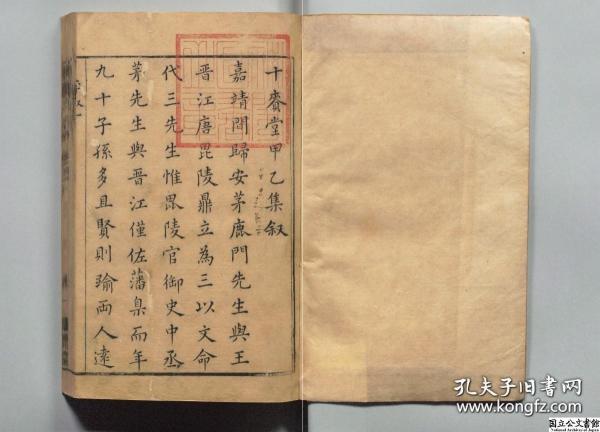 十賚堂甲乙集叙
嘉靖間歸安茅鹿門先生與王
晉江唐毘陵鼎立為三以文命
代三先生惟毘陵官御史中丞
茅先生與晉江僅佐藩臬而年
九十子孫多且賢則踰兩人遠
孔夫子旧书网
www.kongfz.com
国立公文書館
National Archives of Japan